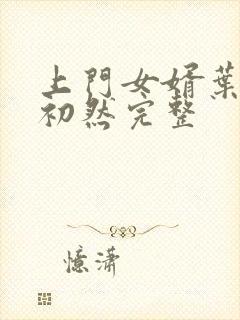 上門女婿葉
初然完整
憶瀟